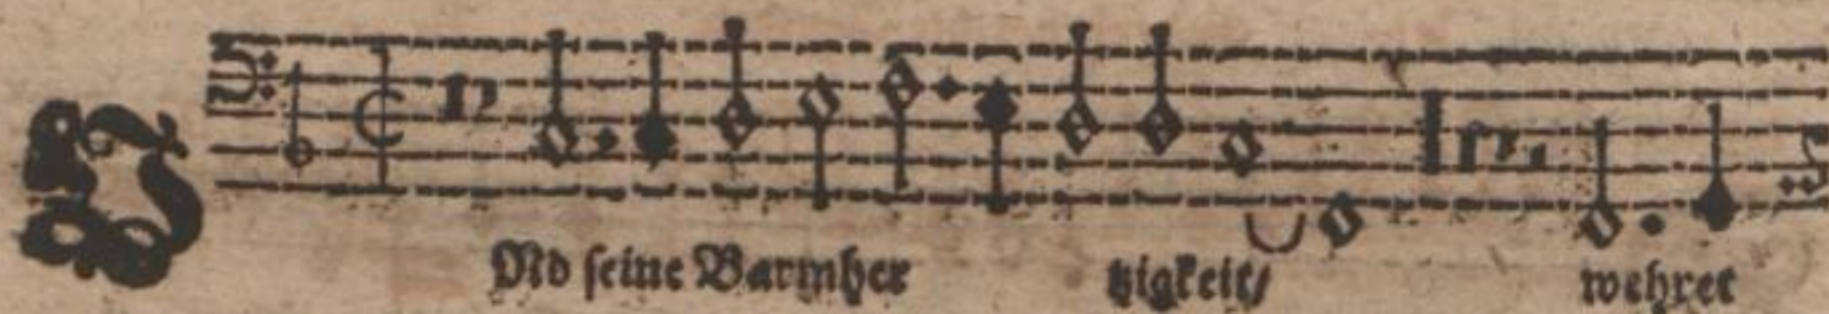 VNd seine Barmher tzigkeit/ wehret